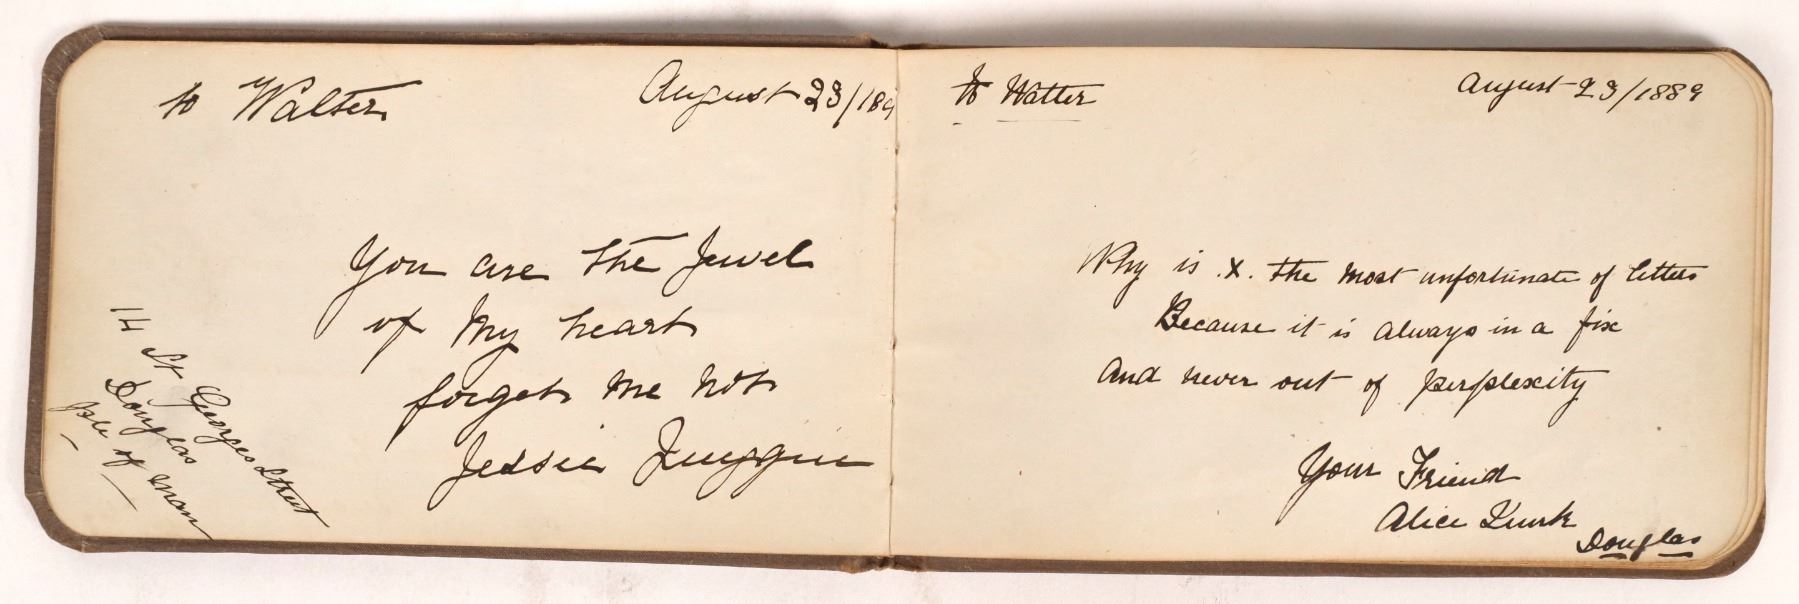 to Walter
August 23/189
You are the Jewel
of My heart
forget me not
Jessie Quiggin
14 St Georges Street
Douglas
Isle of Man
To Walter
August 23/1889
Why is .X. the most unfortunate of letters
Because it is always in a fix
And never out of perplexity
Your Friend
Alice Quirk
Douglas